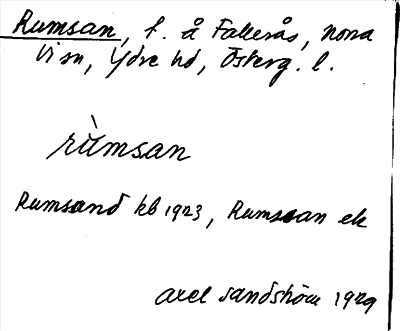 Rumsan, t. å Fallerås, Norra
Vi sn, Ydre hd, Österg. l.
rùmsan
Rumsand kb 1923, Rumssan ek
Axel Sandström 1929